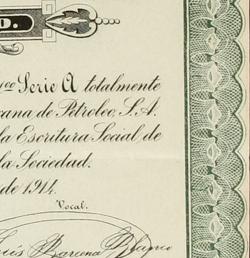 D.
1.00 Serie A totalmente
cana de Petroleo, S.A.
la Escritura Social de
la Sociedad.
de 1914.
Vocal.
Luis Barcena Blanco